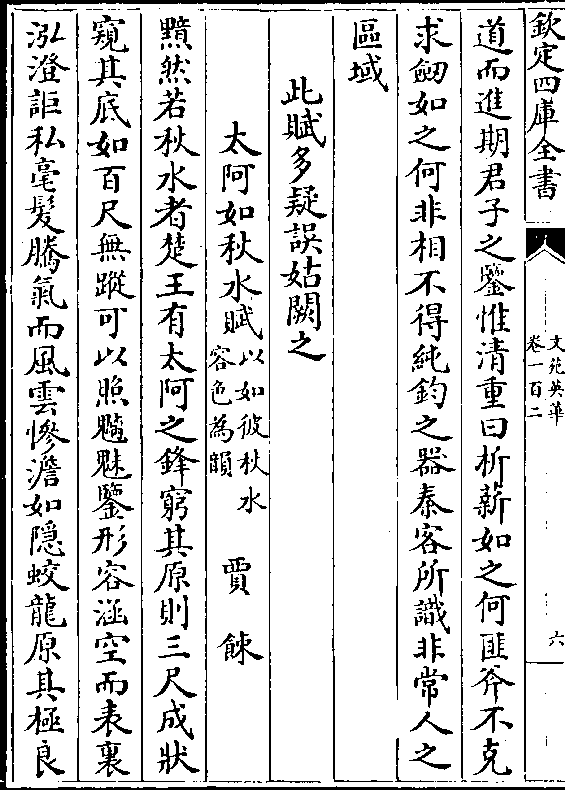 欽定四庫全書
文苑英華
卷一百二
六
道而進期君子之鑒惟清重曰析薪如之何匪斧不克
求劒如之何非相不得純鈞之器秦客所識非常人之
區域
此賦多疑誤姑闕之
太阿如秋水賦以如彼秋水容色為韻 賈餗
黯然若秋水者楚王有太阿之鋒窮其原則三尺成狀
窺其底如百尺無蹤可以照魑魅鑒形容涵空而表裏
泓澄詎私毫髮騰氣而風雲慘澹如隱蛟龍原其極良